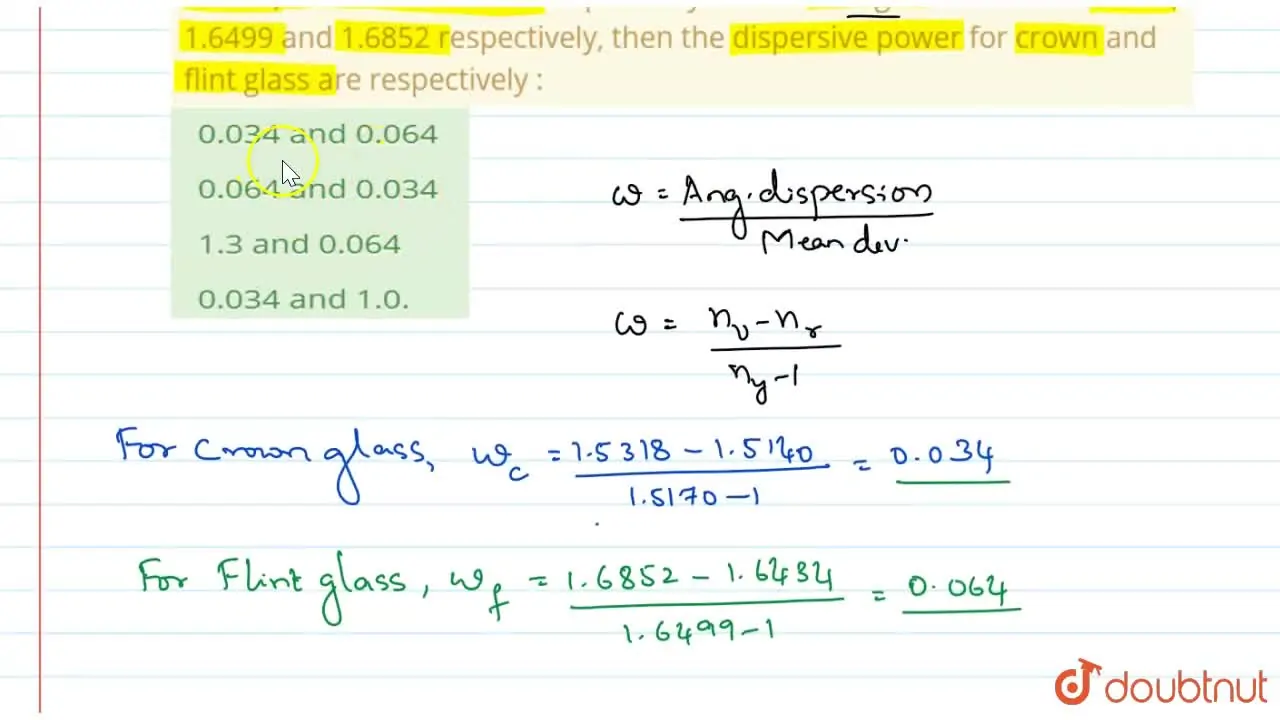 1.6499 and 1.6852 respectively, then the dispersive power for crown and
flint glass are respectively :
0.034 and 0.064
0.064 and 0.034
1.3 and 0.064
0.034 and 1.0.
ω = Ang. dispersion / Mean dev.
ω = nv - nr / ny - 1
For Crown glass, ωc = 1.5318 - 1.5140 / 1.5170 - 1 = 0.034
For Flint glass, ωf = 1.6852 - 1.6434 / 1.6499 - 1 = 0.064
doubtnut